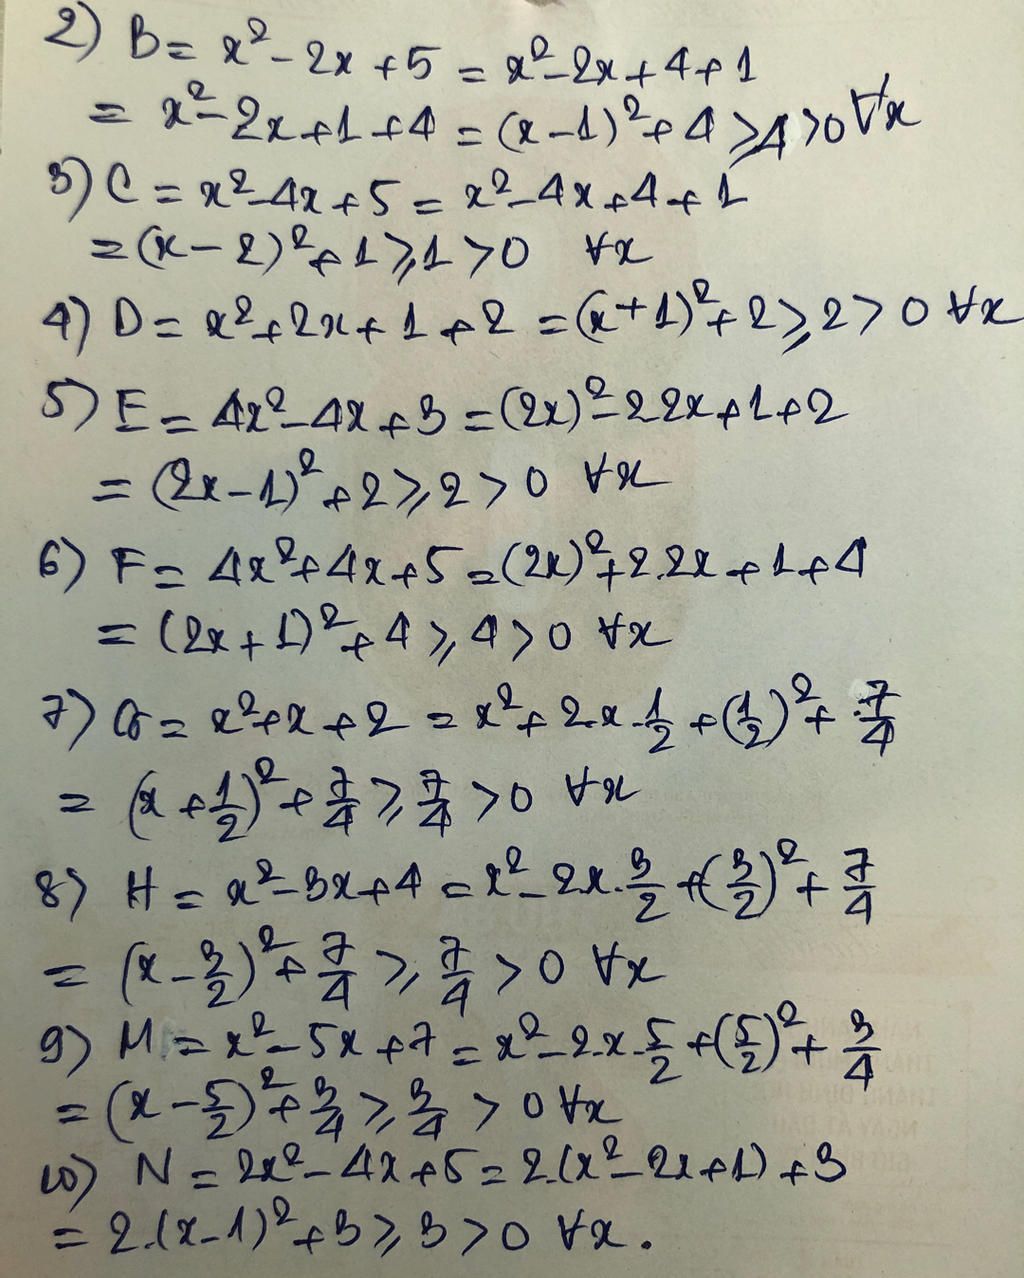 2) B = x² - 2x + 5 = x² - 2x + 4 + 1
= x² - 2x + 1 + 4 = (x - 1)² + 4 ⩾ 4 > 0 ∀x
3) C = x² - 4x + 5 = x² - 4x + 4 + 1
= (x - 2)² + 1 ⩾ 1 > 0 ∀x
4) D = x² + 2x + 1 + 2 = (x + 1)² + 2 ⩾ 2 > 0 ∀x
5) E = 4x² - 4x + 3 = (2x)² - 2 2x + 1 + 2
= (2x - 1)² + 2 ⩾ 2 > 0 ∀x
6) F = 4x² + 4x + 5 = (2x)² + 2.2x + 1 + 4
= (2x + 1)² + 4 ⩾ 4 > 0 ∀x
7) G = x² + x + 2 = x² + 2.x.1/2 + (1/2)² + 7/4
= (x + 1/2)² + 7/4 ⩾ 7/4 > 0 ∀x
8) H = x² - 3x + 4 = x² - 2x.3/2 + (3/2)² + 7/4
= (x - 3/2)² + 7/4 ⩾ 7/4 > 0 ∀x
9) M = x² - 5x + 7 = x² - 2.x.5/2 + (5/2)² + 3/4
= (x - 5/2)² + 3/4 ⩾ 3/4 > 0 ∀x
10) N = 2x² - 4x + 5 = 2.(x² - 2x + 1) + 3
= 2.(x - 1)² + 3 ⩾ 3 > 0 ∀x.